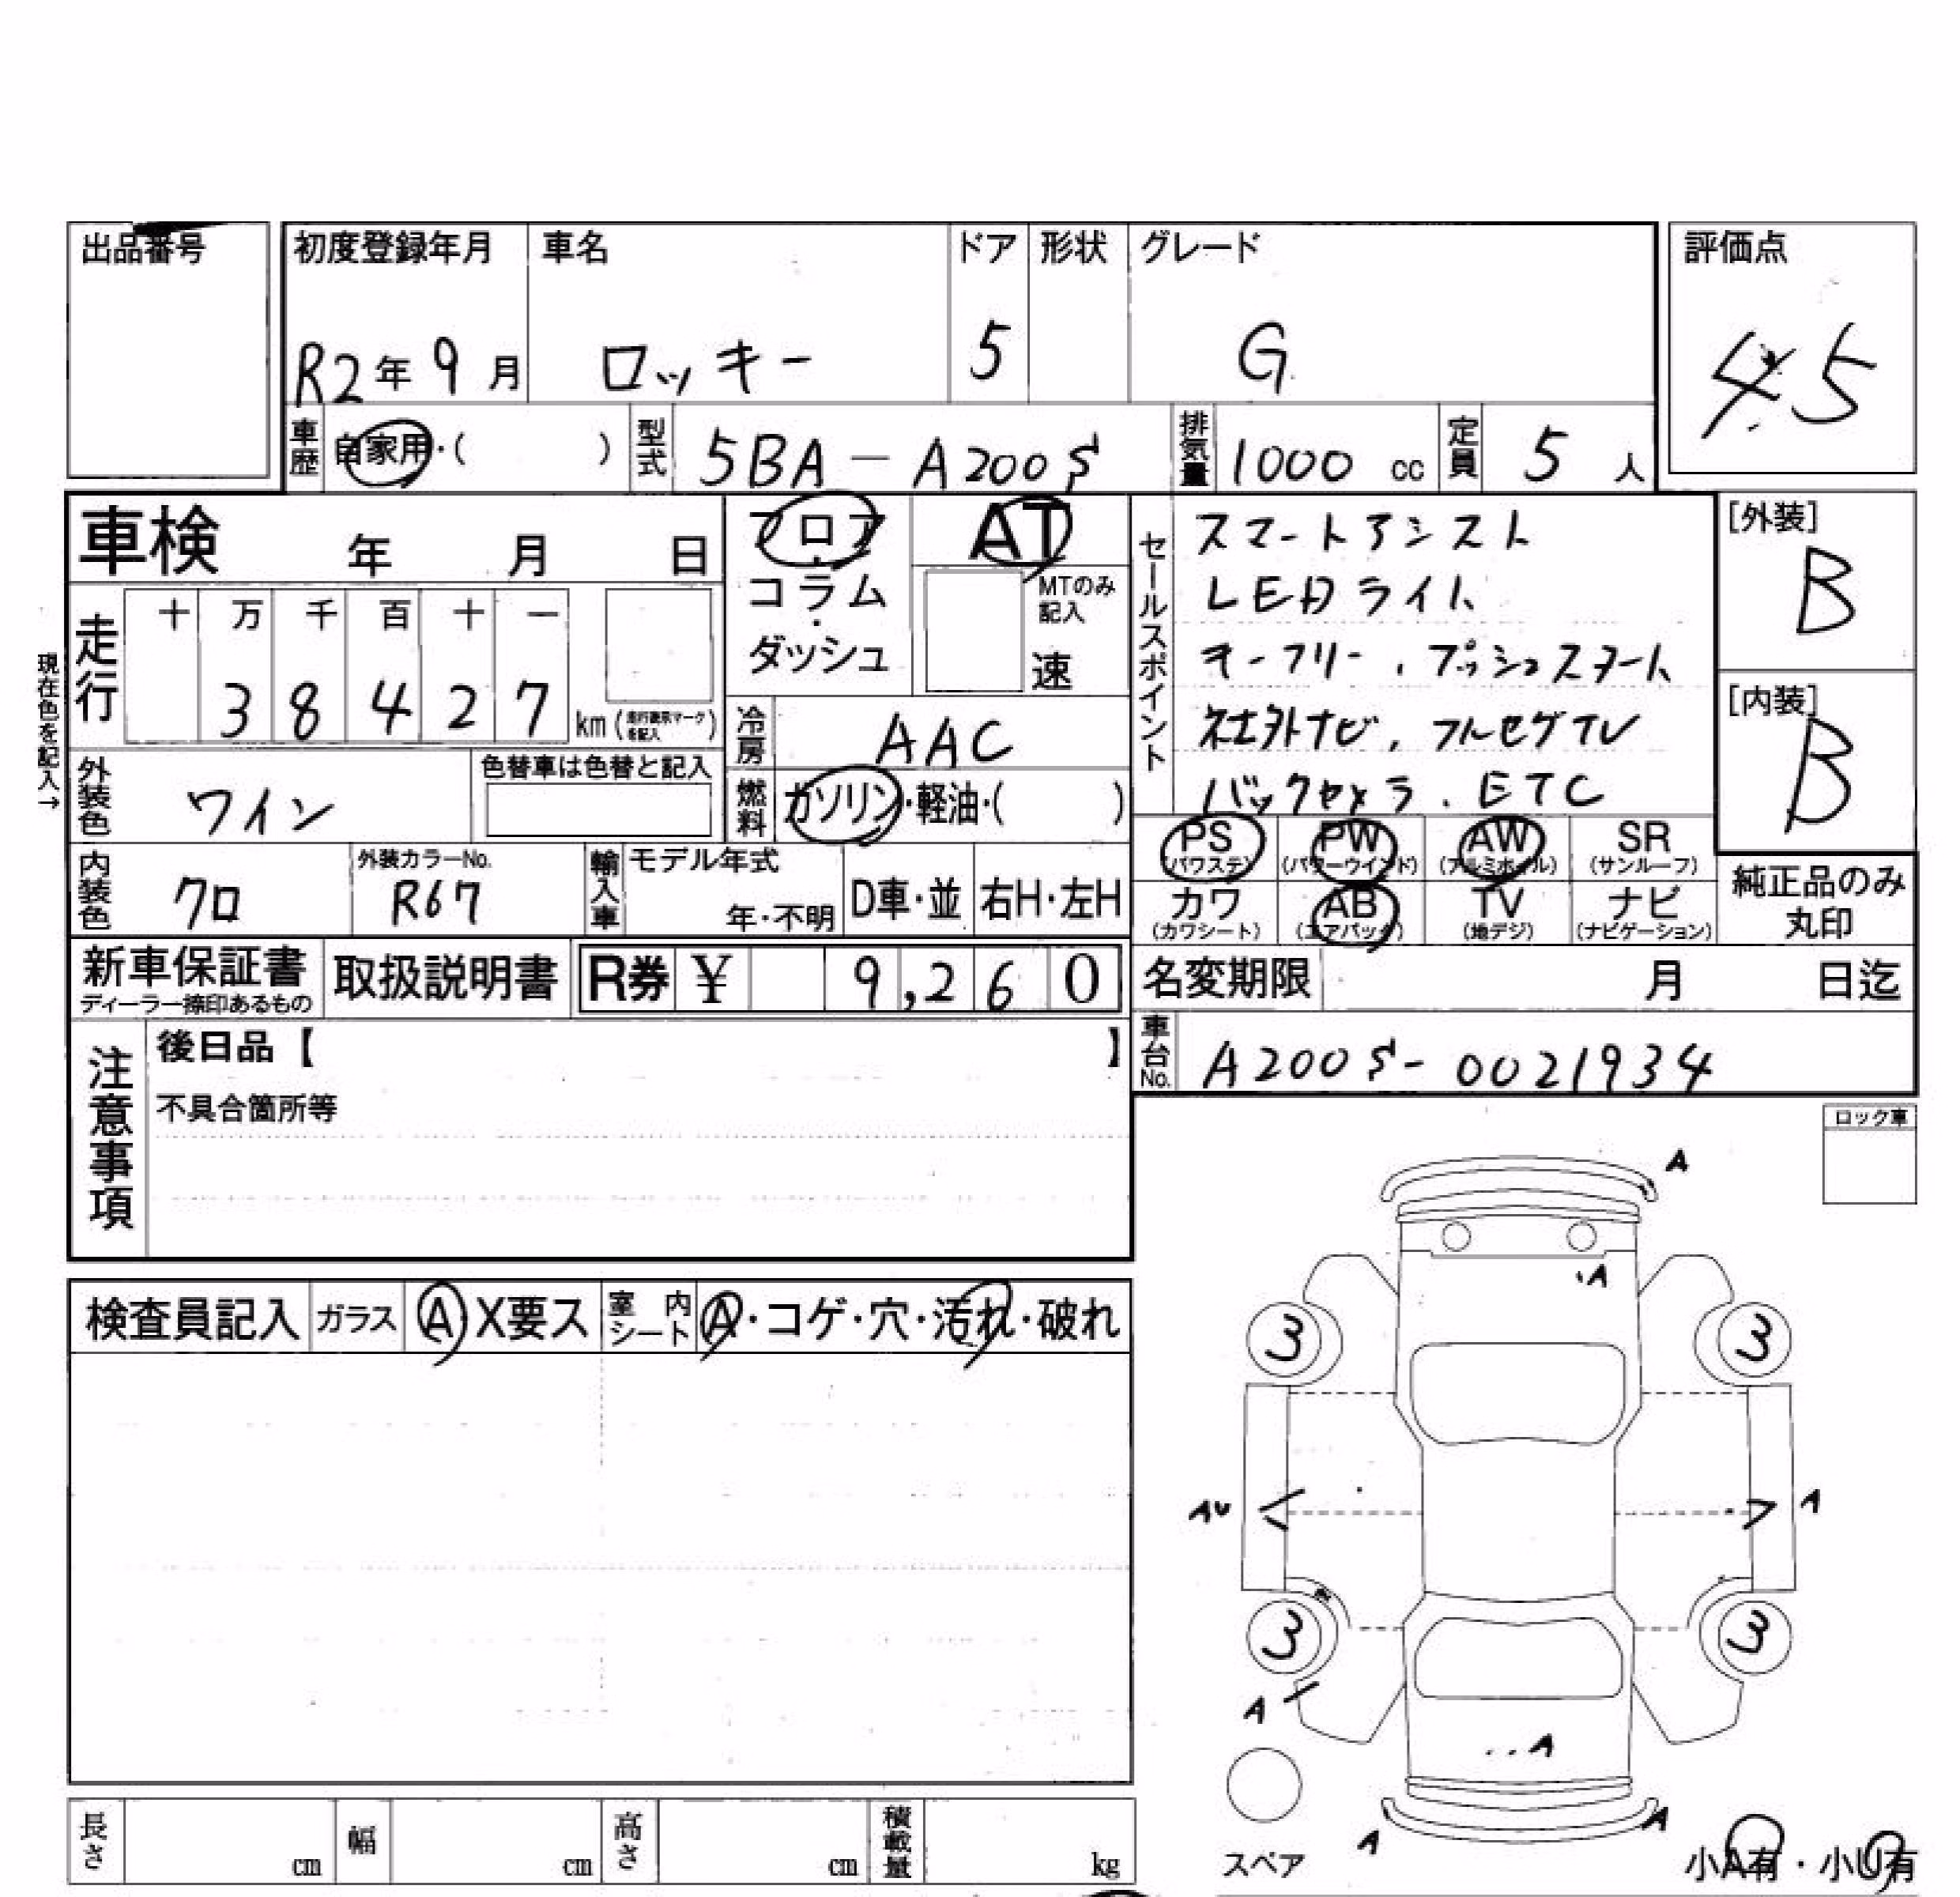 出品番号
初度登録年月 車名 ドア 形状 グレード 評価点
R2年 9月 ロッキー 5 G 4.5
車歴 自家用・( ) 型式 5BA-A200S 排気量 1000 cc 定員 5 人
車検 年 月 日
フロア・コラム・ダッシュ
AT
MTのみ記入
速
セールスポイント
スマートアシスト
LEDライト
キーフリー、プッシュスタート
社外ナビ、フルセグTV
バックカメラ、ETC
[外装]
B
[内装]
B
現在色を記入→
走行 十 万 千 百 十 一
3 8 4 2 7 km (走行表示マークを記入)
冷房 AAC
外装色 ワイン 色替車は色替と記入
燃料 ガソリン・軽油・( )
PS (パワステ) PW (パワーウインド) AW (アルミホイル) SR (サンルーフ)
カワ (カワシート) AB (エアバック) TV (地デジ) ナビ (ナビゲーション)
純正品のみ丸印
内装色 クロ 外装カラーNo. R67 輸入車 モデル年式 年・不明 D車・並 右H・左H
新車保証書 ディーラー捺印あるもの 取扱説明書 R券 ¥ 9,260
名変期限 月 日迄
車台No. A200S-0021934
注意事項
後日品【 】
不具合箇所等
ロック車
検査員記入 ガラス A X要ス 室内シート A・コゲ・穴・汚れ・破れ
A
A
3 3
AU A
3 3
A
A
A A
スペア
小A有・小U有
長さ cm 幅 cm 高さ cm 積載量 kg